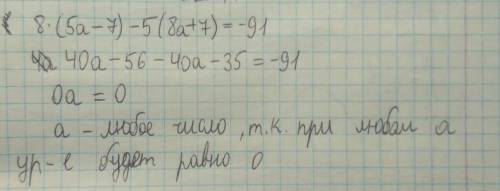 8·(5a-7)-5(8a+7)=-91
40a-56-40a-35=-91
0a=0
a - любое число, т.к. при любом a
ур-е будет равно 0